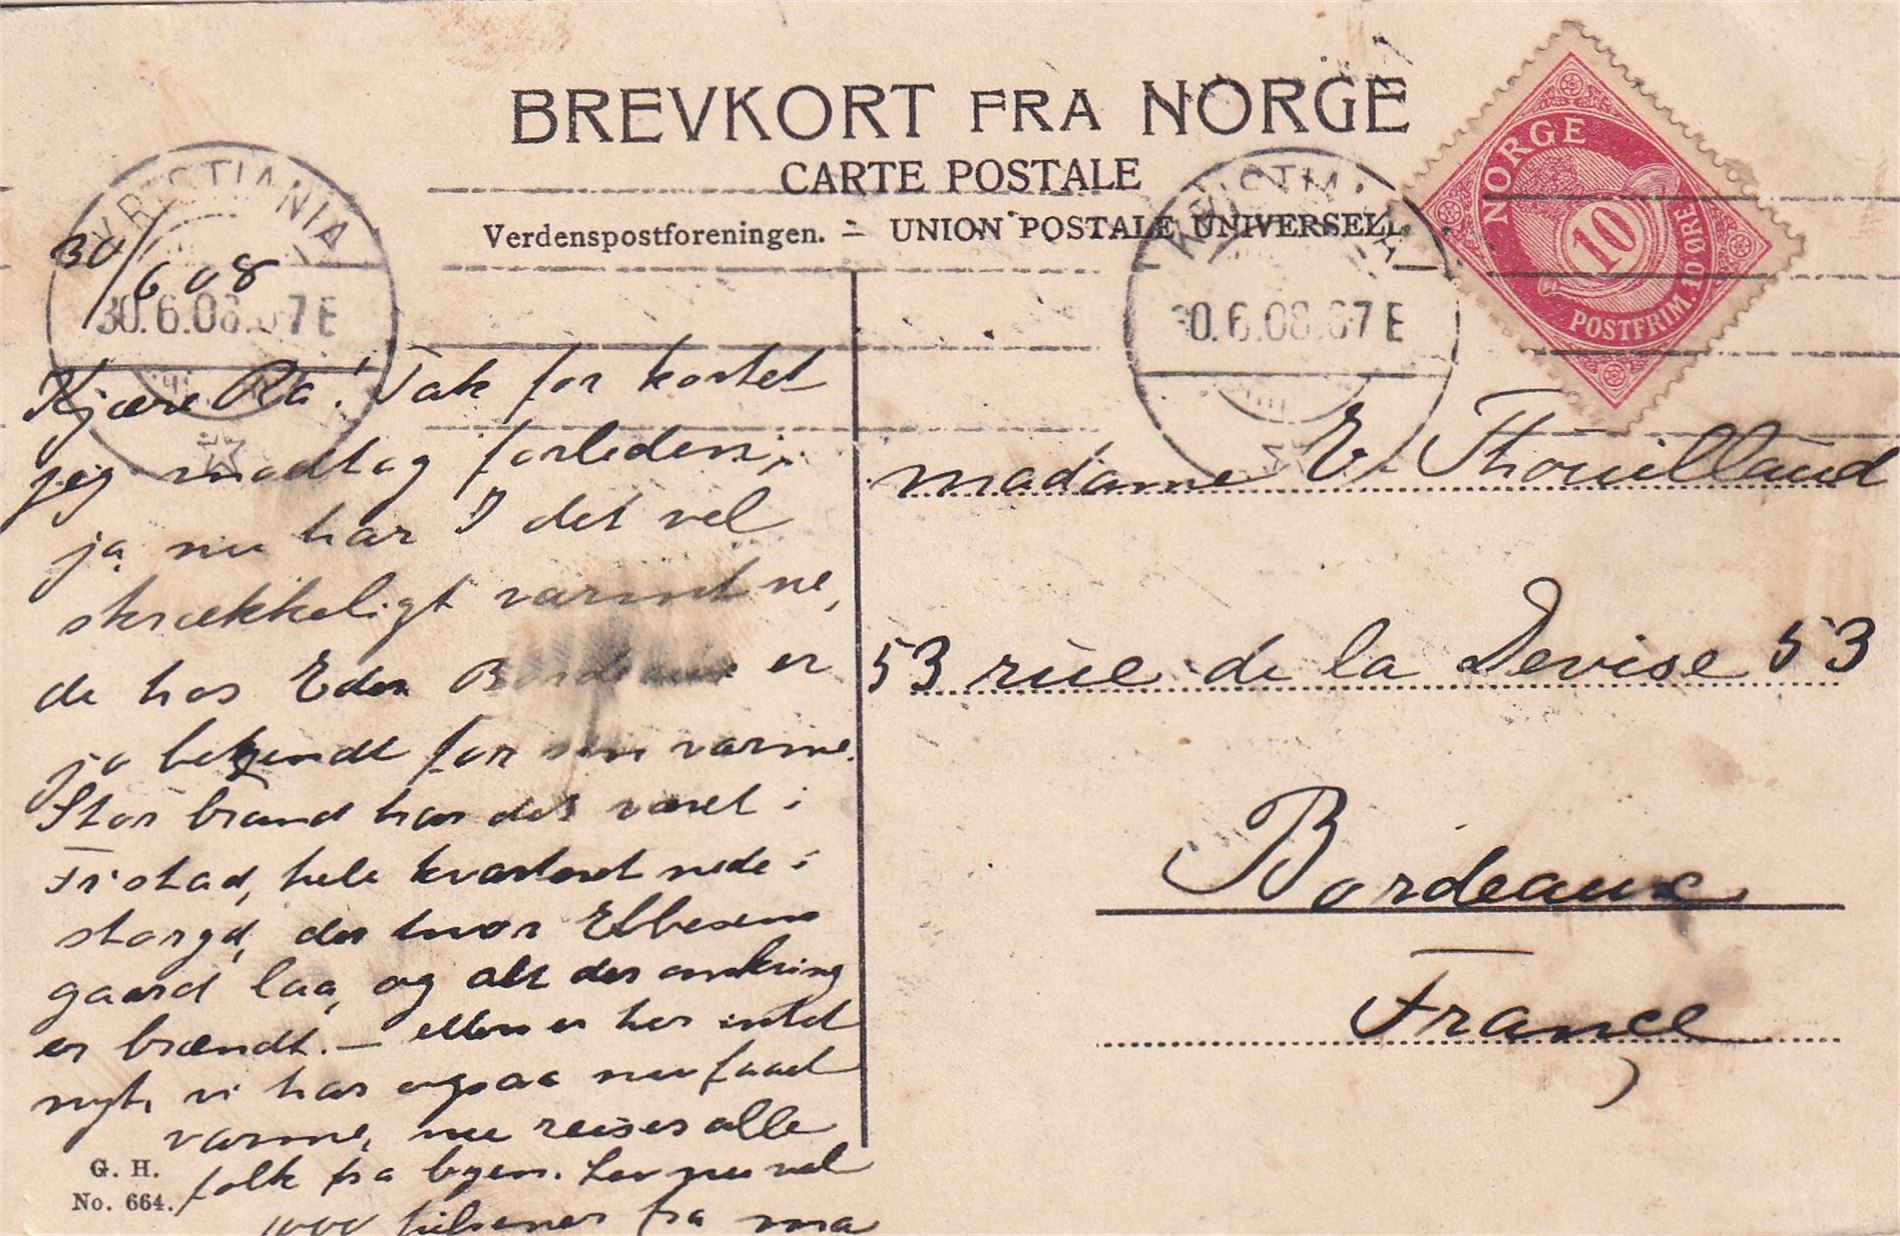 BREVKORT FRA NORGE
CARTE POSTALE
Verdenspostforeningen. – UNION POSTALE UNIVERSELLE
NORGE
10
POSTFRIM. 10 ØRE
KRISTIANIA
30.6.08. 7 E
KRISTIANIA
30.6.08. 7 E
30/6 08
Kjære Ra! Tak for kortet
jeg modtog forleden;
ja nu har I det vel
skrækkeligt varmt ne,
de hos Eder Bordeaux er
jo bekendt for sin varme.
Stor brand har det været i
Fr'stad, hele kvarteret nede i
storgd, der hvor Ebbesens
gaard laa, og alt der omkring
er brændt. — ellers er her intet
nyt, vi har ogsaa nu faaet
varme, nu reiser alle
folk fra byen. Lev nu vel
1000 hilsener fra ma
G. H.
No. 664.
madame E. Thouilland
53 rue de la Devise 53
Bordeaux
France